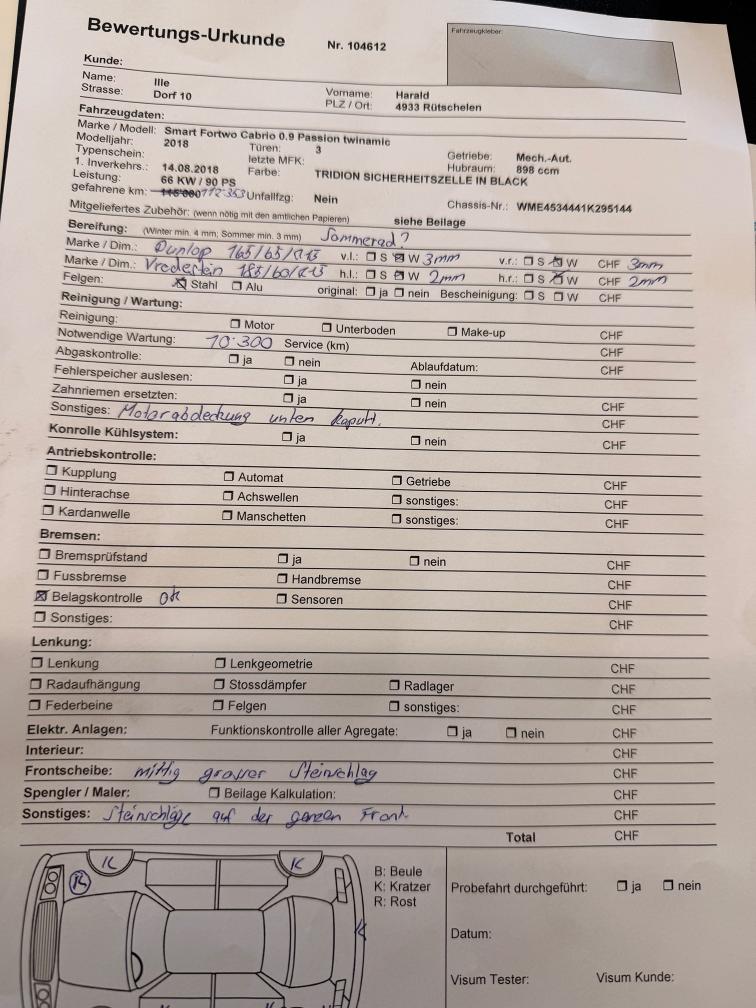 Bewertungs-Urkunde Nr. 104612 Fahrzeugkleber:
Kunde:
Name: Ille Vorname: Harald
Strasse: Dorf 10 PLZ / Ort: 4933 Rütschelen
Fahrzeugdaten:
Marke / Modell: Smart Fortwo Cabrio 0.9 Passion twinamic
Modelljahr: 2018 Türen: 3 Getriebe: Mech.-Aut.
Typenschein: letzte MFK: Hubraum: 898 ccm
1. Inverkehrs.: 14.08.2018 Farbe: TRIDION SICHERHEITSZELLE IN BLACK
Leistung: 66 KW / 90 PS
gefahrene km: 115'000 112'353 Unfallfzg: Nein Chassis-Nr.: WME4534441K295144
Mitgeliefertes Zubehör: (wenn nötig mit den amtlichen Papieren) siehe Beilage
Bereifung: (Winter min. 4 mm; Sommer min. 3 mm) Sommerad?
Marke / Dim.: Dunlop 165/65/R15 v.l.: S W 3mm v.r.: S W CHF 3mm
Marke / Dim.: Vredestein 185/60/R15 h.l.: S W 2mm h.r.: S W CHF 2mm
Felgen: Stahl Alu original: ja nein Bescheinigung: S W CHF
Reinigung / Wartung:
Reinigung: Motor Unterboden Make-up CHF
Notwendige Wartung: 10'300 Service (km) CHF
Abgaskontrolle: ja nein Ablaufdatum: CHF
Fehlerspeicher auslesen: ja nein
Zahnriemen ersetzten: ja nein CHF
Sonstiges: Motorabdeckung unten kaputt. CHF
Konrolle Kühlsystem: ja nein CHF
Antriebskontrolle:
Kupplung Automat Getriebe CHF
Hinterachse Achswellen sonstiges: CHF
Kardanwelle Manschetten sonstiges: CHF
Bremsen:
Bremsprüfstand ja nein CHF
Fussbremse Handbremse CHF
Belagskontrolle ok Sensoren CHF
Sonstiges: CHF
Lenkung:
Lenkung Lenkgeometrie CHF
Radaufhängung Stossdämpfer Radlager CHF
Federbeine Felgen sonstiges: CHF
Elektr. Anlagen: Funktionskontrolle aller Agregate: ja nein CHF
Interieur: CHF
Frontscheibe: mittig grosser Steinschlag CHF
Spengler / Maler: Beilage Kalkulation: CHF
Sonstiges: Steinschläge auf der ganzen Front. CHF
Total CHF
K K
K
B: Beule
K: Kratzer
R: Rost
K
Probefahrt durchgeführt: ja nein
Datum:
Visum Tester: Visum Kunde: